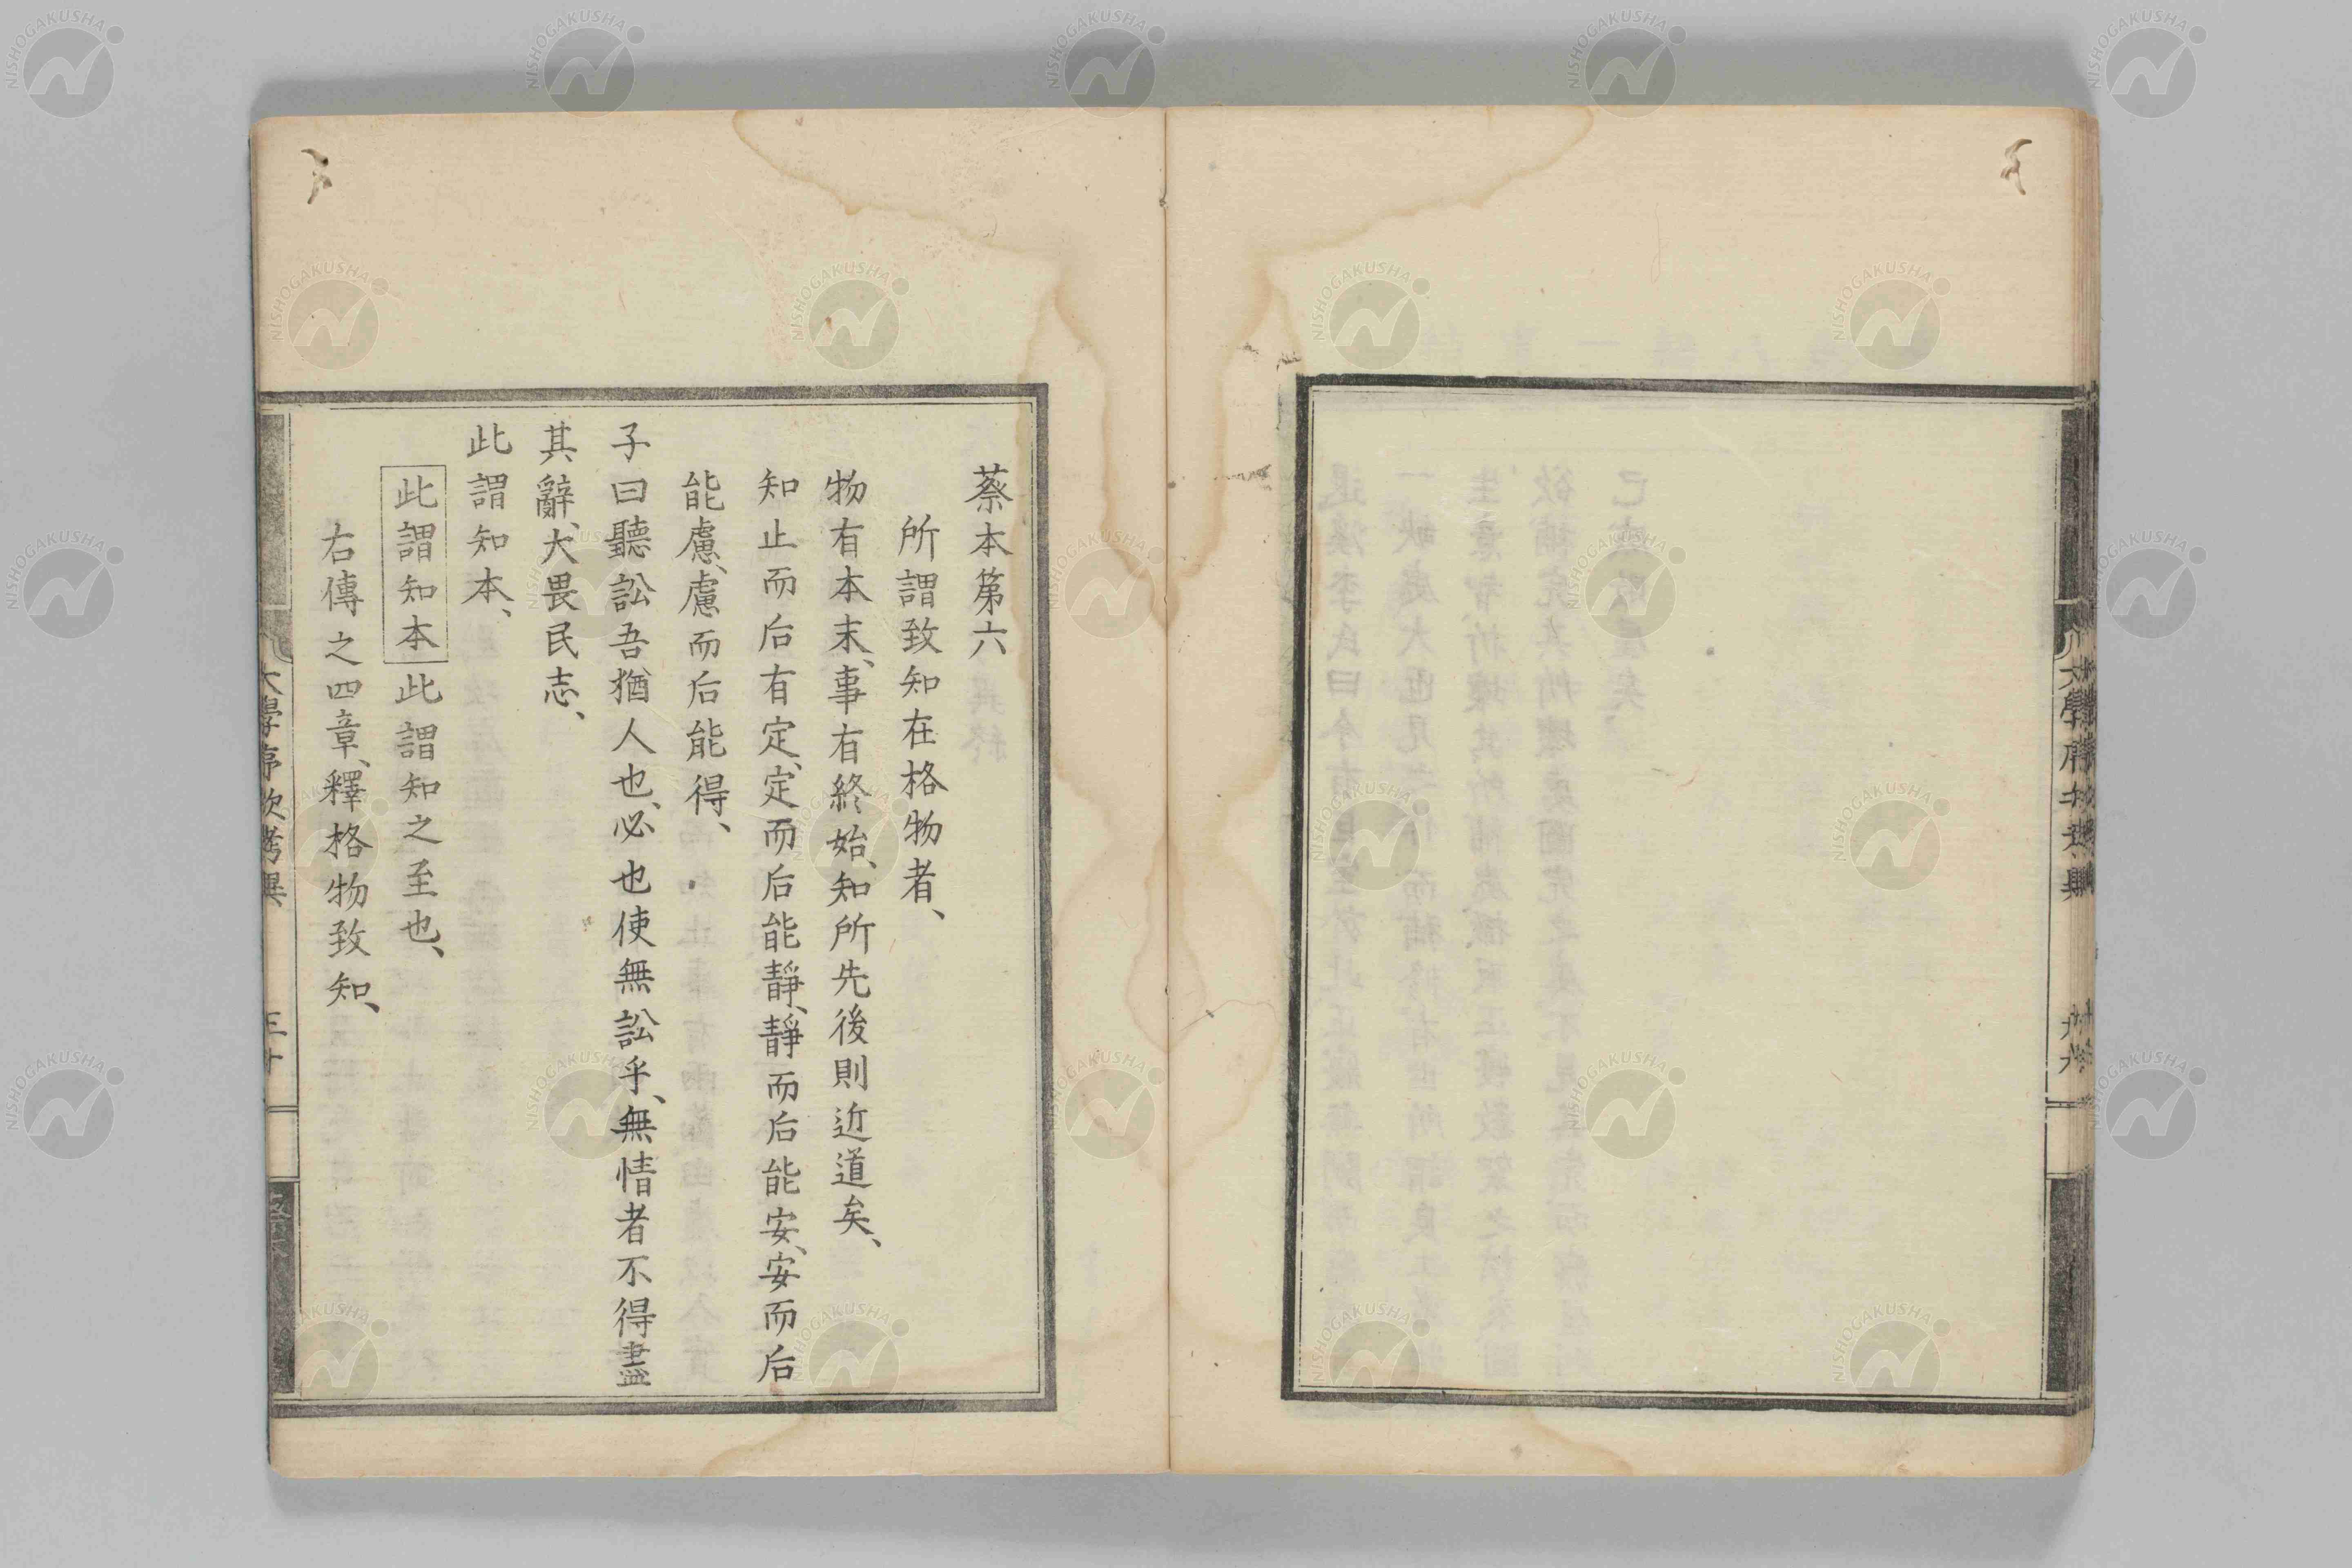 蔡本第六
所謂致知在格物者、
物有本末、事有終始、知所先後則近道矣、
知止而后有定、定而后能靜、靜而后能安、安而后
能慮、慮而后能得、
子曰聽訟吾猶人也、必也使無訟乎、無情者不得盡
其辭、大畏民志、
此謂知本、
此謂知本此謂知之至也、
右傳之四章、釋格物致知、
大學序次考異
三十
NISHOGAKUSHA